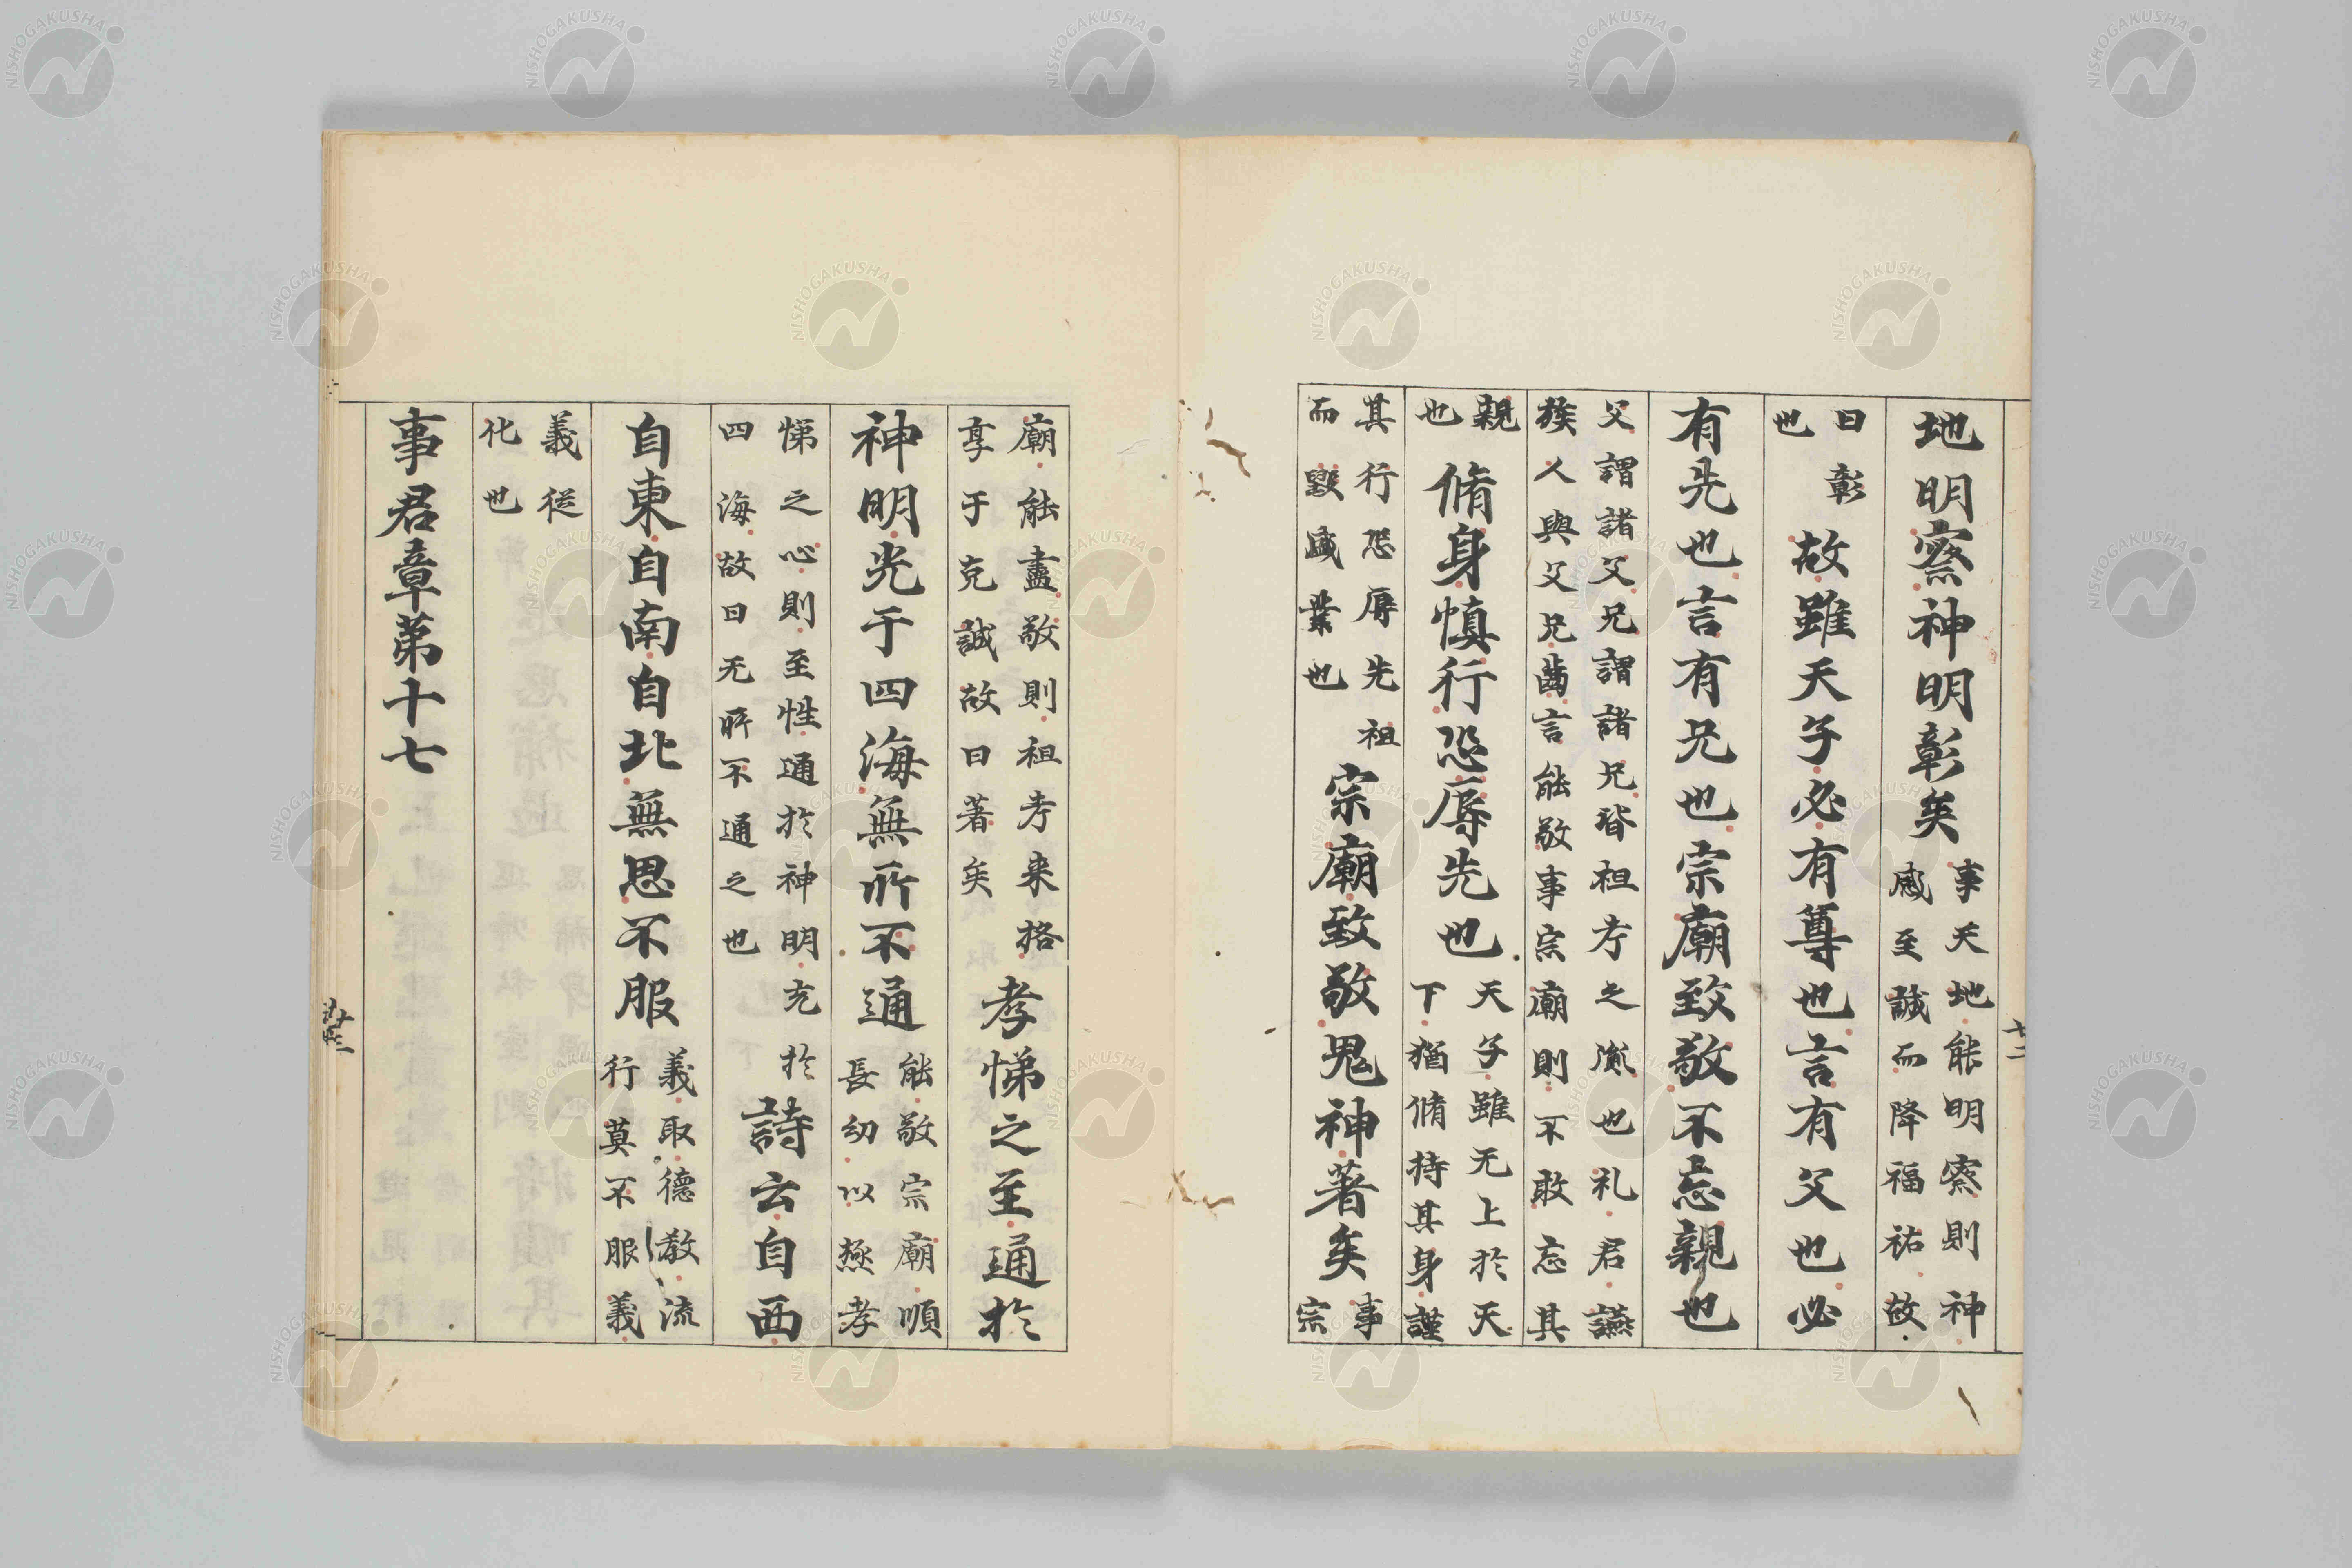 地明察神明彰矣事天地能明察則神
感至誠而降福祐故
曰彰
也故雖天子必有尊也言有父也必
有先也言有兄也宗廟致敬不忘親也
父謂諸父兄謂諸兄皆祖考之胤也礼君讌
族人與父兄齒言能敬事宗廟則不敢忘其
親
也脩身慎行恐辱先也天子雖无上於天
下猶脩持其身謹
其行恐辱先祖
而毀盛業也宗廟致敬鬼神著矣事
宗
廟能盡敬則祖考来格
享于克誠故曰著矣孝悌之至通於
神明光于四海無所不通能敬宗廟順
長幼以極孝
悌之心則至性通於神明光於
四海故曰无所不通之也詩云自西
自東自南自北無思不服義取德教流
行莫不服義
義從
化也
事君章第十七
NISHOGAKUSHA